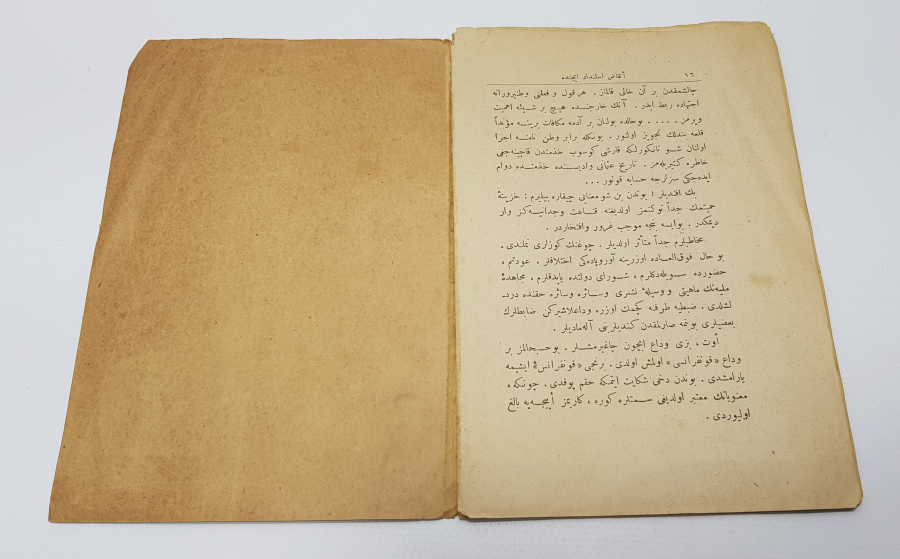 ١٦ أنقاض استبداد ایچنده
چالشمقدن بر آن خالی قالماز . هر قول و فعلنی وطنپرورانه
اجتهاده ربط ایدر . آنك خارجنده هیچ بر شیئه اهمیت
ویرمز . . . . . بو حالده بولنان بر آدمه مكافات یرینه مؤبداً
قلعه بندلك تجویز اولنور . بونكله برابر وطن نامنه اجرا
اولنان شو نانكورلكه قارشی كوسوب خدمتدن قاچینه‌جغی
خاطره كتیریله‌مز . تاریخ عثمانی وادیسنده خدمتده دوام
ایده‌جكی سزلرجه حسابه قونور . . .
بك افندیلر ! بوندن بن شو معنایی چیقاره بیلیرم : خزینهٔ
حمیتمك جداً توكنمز اولدیغنه قناعت وجدانیه‌كز وار
دیمكدر . بو ایسه بنجه موجب غرور وافتخاردر .
مخاطبلرم جداً متأثر اولدیلر . چوغنك كوزلری نملندی .
بو حال فوق‌العاده اوزرینه آوروپاده‌كی اختلافلر ، عودتم ،
حضورده سویله‌دكلرم ، شورای دولتده یاپدقلرم ، مجاهدهٔ
ملیه‌نك ماهیتی و وسیلهٔ نشری وسائره وسائره حقنده درد-
لشلدی . ضبطیه طرفنه كچمك اوزره وداعلاشیركن ضابطلرك
بعضیلری بوینمه صارلمقدن كندیلرینی آله‌مادیلر .
أوت ، بزی وداع ایچون چاغیرمشلر . بو حسبحالمز بر
وداع «قونفرانسی» اولمش اولدی . برنجی «قونفرانس» ایشیمه
یارامشدی . بوندن دخی شكایت ایتمكه حقم یوقدی . چونكه ،
معنویاتك معتبر اولدیغی سمتلره كوره ، كاریمز أپیجه‌یه بالغ
اولیوردی .